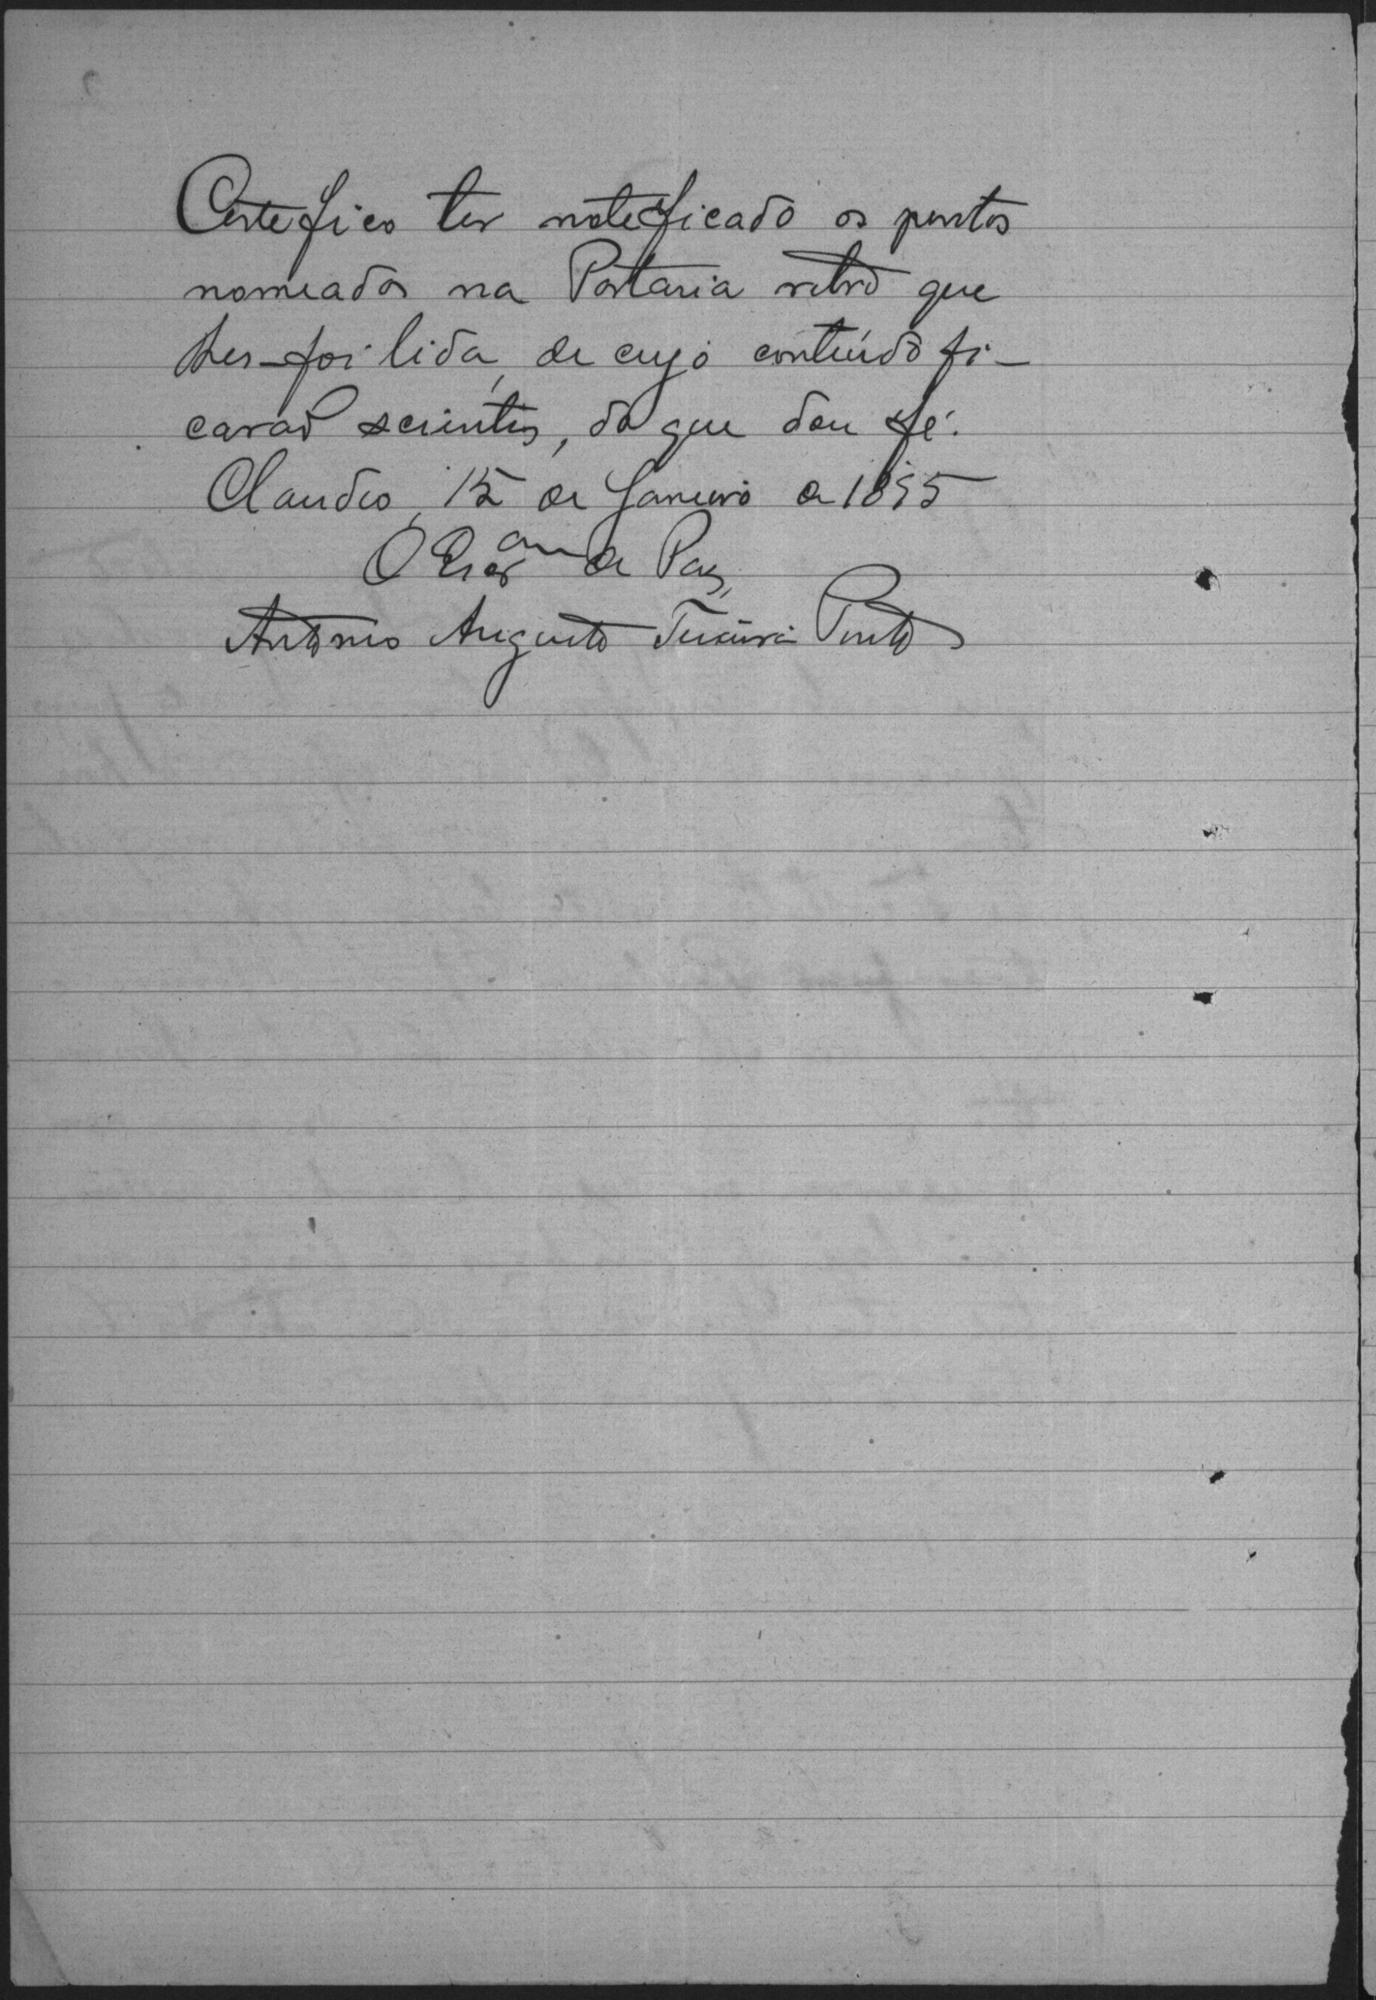 Certefico ter noteficado os peritos
nomeados na Portaria retro que
lhes foi lida, de cujo conteúdo fi-
carão scientes, do que dou fé.
Claudio, 15 de Janeiro de 1895
O Escr.am de Paz,
Antonio Augusto Teixeira Pinto